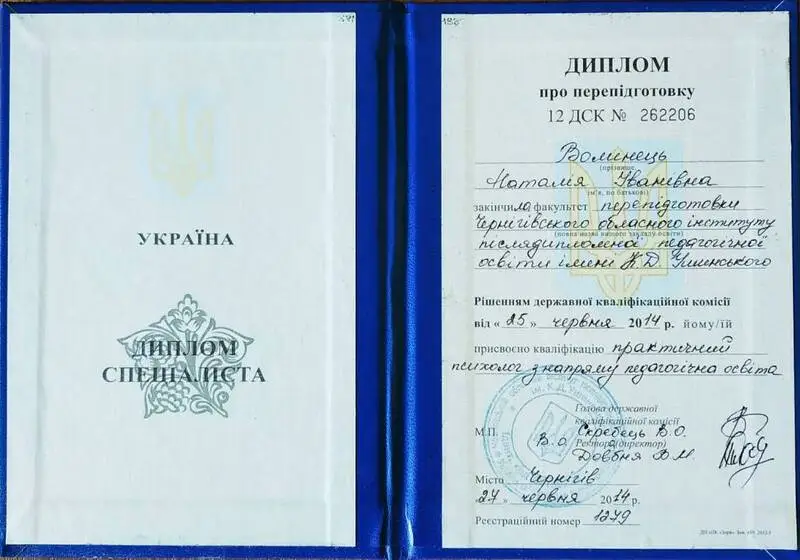 УКРАЇНА
ДИПЛОМ
СПЕЦІАЛІСТА
ДИПЛОМ
про перепідготовку
12 ДСК № 262206
Волинець
(прізвище,
Наталія Іванівна
ім'я, по батькові)
закінчила факультет перепідготовки
Чернігівського обласного інституту
(повна назва вищого закладу освіти)
післядипломеної педагогічної
освіти імені К.Д. Ушинського
Рішенням державної кваліфікаційної комісії
від «25» червня 2014 р. йому/їй
присвоєно кваліфікацію практичний
психолог з напряму педагогічна освіта
Голова державної
кваліфікаційної комісії
М.П. Скребець В.О.
В.о. Ректора (директор)
Довбня В.М.
Місто Чернігів
27 червня 2014 р.
Реєстраційний номер 1279